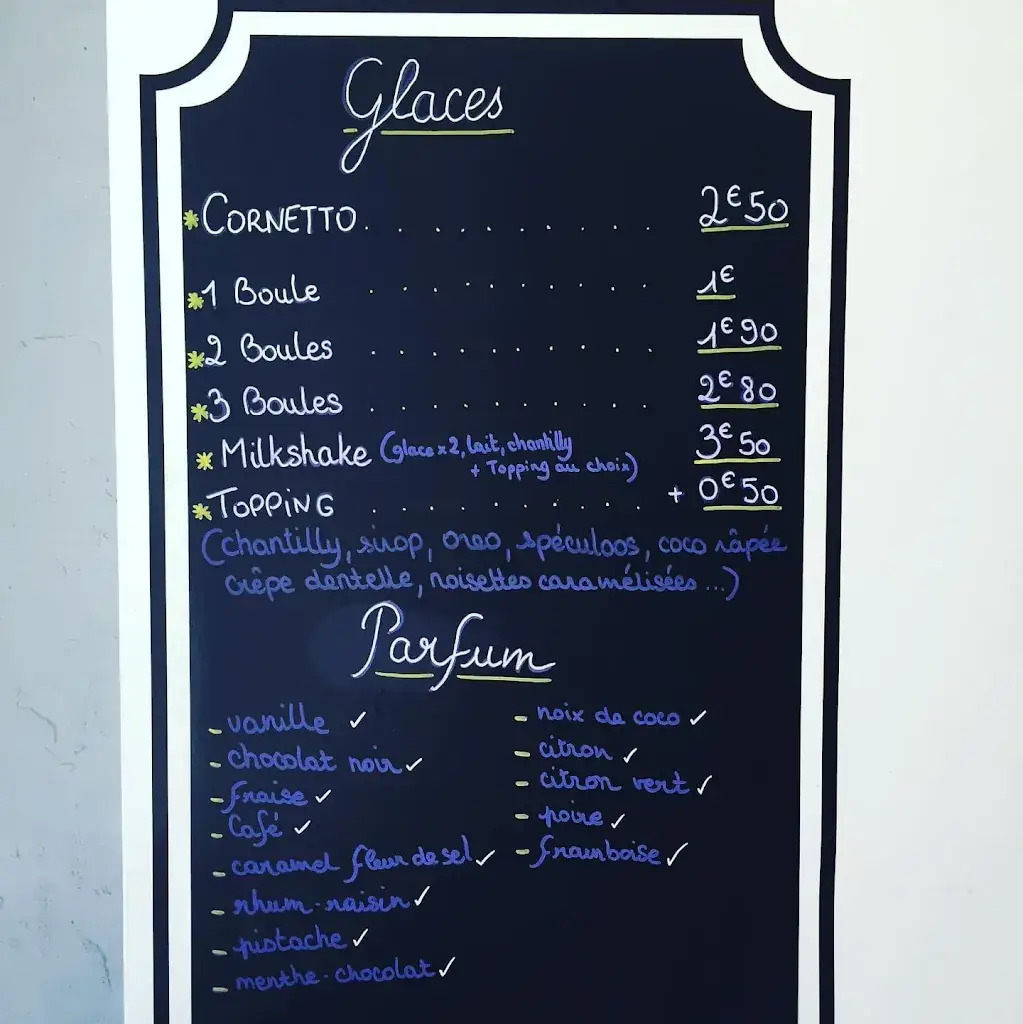 Glaces
* CORNETTO . . . . . . . . . . 2€50
* 1 Boule . . . . . . . . . . 1€
* 2 Boules . . . . . . . . . . 1€90
* 3 Boules . . . . . . . . . . 2€80
* Milkshake (Glace x2, lait, chantilly 3€50
+ Topping au choix)
* TOPPING . . . . . . . . . . + 0€50
(chantilly, sirop, oreo, spéculoos, coco râpée
crêpe dentelle, noisettes caramélisées ...)
Parfum
- vanille ✓
- chocolat noir ✓
- fraise ✓
- Café ✓
- caramel fleur de sel ✓
- rhum-raisin ✓
- pistache ✓
- menthe-chocolat ✓
- noix de coco ✓
- citron ✓
- citron vert ✓
- poire ✓
- framboise ✓